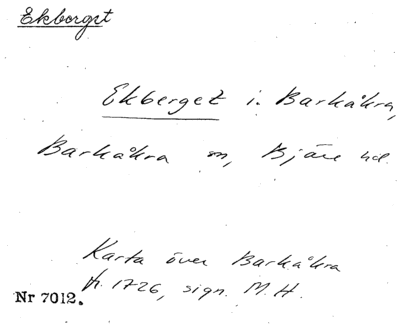 Ekberget
Ekberget i Barkåkra,
Barkåkra sn, Bjäre hd.
Karta över Barkåkra
fr. 1726, sign. M.H.
Nr 7012.